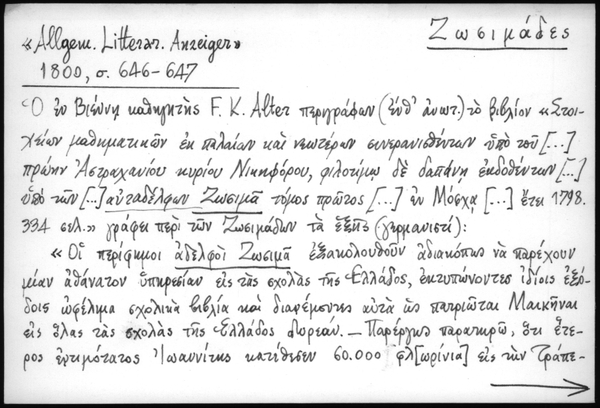 «Allgem. Litterar. Anzeiger»
Ζωσιμάδες
1800, σ. 646-647
Ὁ ἐν Βιέννῃ καθηγητὴς F. K. Alter περιγράφων (ἐνθ' ἀνωτ.) τὸ βιβλίον «Στοι-
χείων μαθηματικῶν ἐκ παλαιῶν καὶ νεωτέρων συνερανισθέντων ὑπὸ τοῦ [...]
πρώην Ἀστραχανίου κυρίου Νικηφόρου, φιλοτίμῳ δὲ δαπάνῃ ἐκδοθέντων [...]
ὑπὸ τῶν [...] αὐταδέλφων Ζωσιμᾶ τόμος πρῶτος [...] ἐν Μόσχᾳ [...] ἔτει 1798.
334 σελ.» γράφει περὶ τῶν Ζωσιμάδων τὰ ἑξῆς (γερμανιστί):
«Οἱ περίφημοι ἀδελφοὶ Ζωσιμᾶ ἐξακολουθοῦν ἀδιακόπως νὰ παρέχουν
μίαν ἀθάνατον ὑπηρεσίαν εἰς τὰς σχολὰς τῆς Ἑλλάδος, ἐκτυπώνοντες ἰδίοις ἐξό-
δοις ὠφέλιμα σχολικὰ βιβλία καὶ διανέμοντες αὐτὰ ὡς πατριῶται Μαικῆναι
εἰς ὅλας τὰς σχολὰς τῆς Ἑλλάδος δωρεάν. — Παρέργως παρατηρῶ, ὅτι ἕτε-
ρος ἐντιμότατος Ἰωαννίτης κατέθεσεν 60.000 φλ[ωρίνια] εἰς τὴν Τράπε-